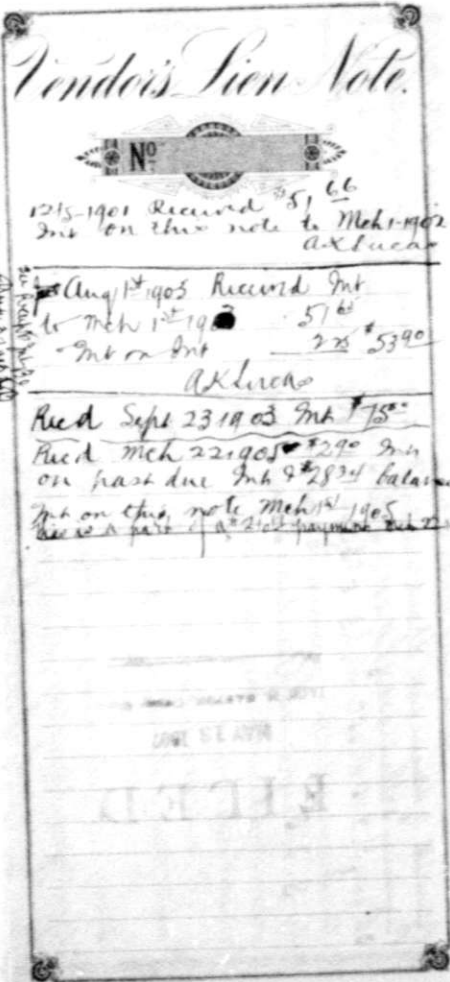 Vendor's Lien Note.
No
12/5-1901 Received $51 66
Int on this note to Mch 1-1902
A K Lucas
Aug 1st 1903 Received Int
to Mch 1st 51 65
Int on Int 2 25 $53 90
A K Lucas
Recd Sept 23 1903 Int $15 00
Recd Mch 22 1905 $2 90 Int
on past due Int & $28 34 balance
Int on this note Mch 1st 1905
this is a part of a payment
FILED